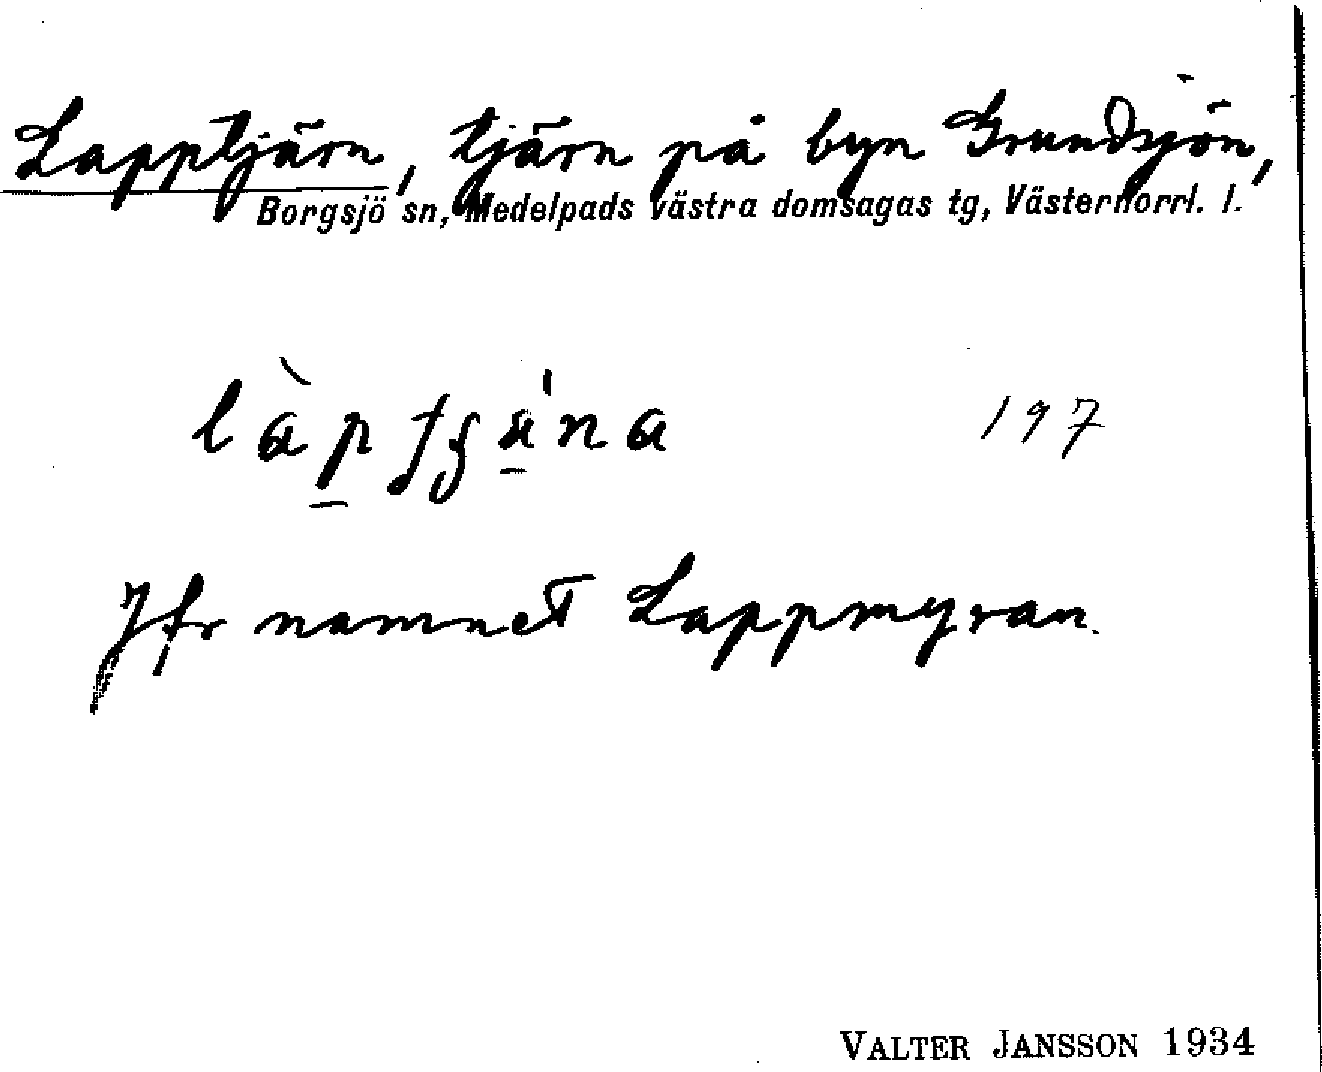 Lapptjärn, tjärn på byn Grundsjön,
Borgsjö sn, Medelpads västra domsagas tg, Västernorrl. l.
197
Jfr namnet Lappmyran.
VALTER JANSSON 1934